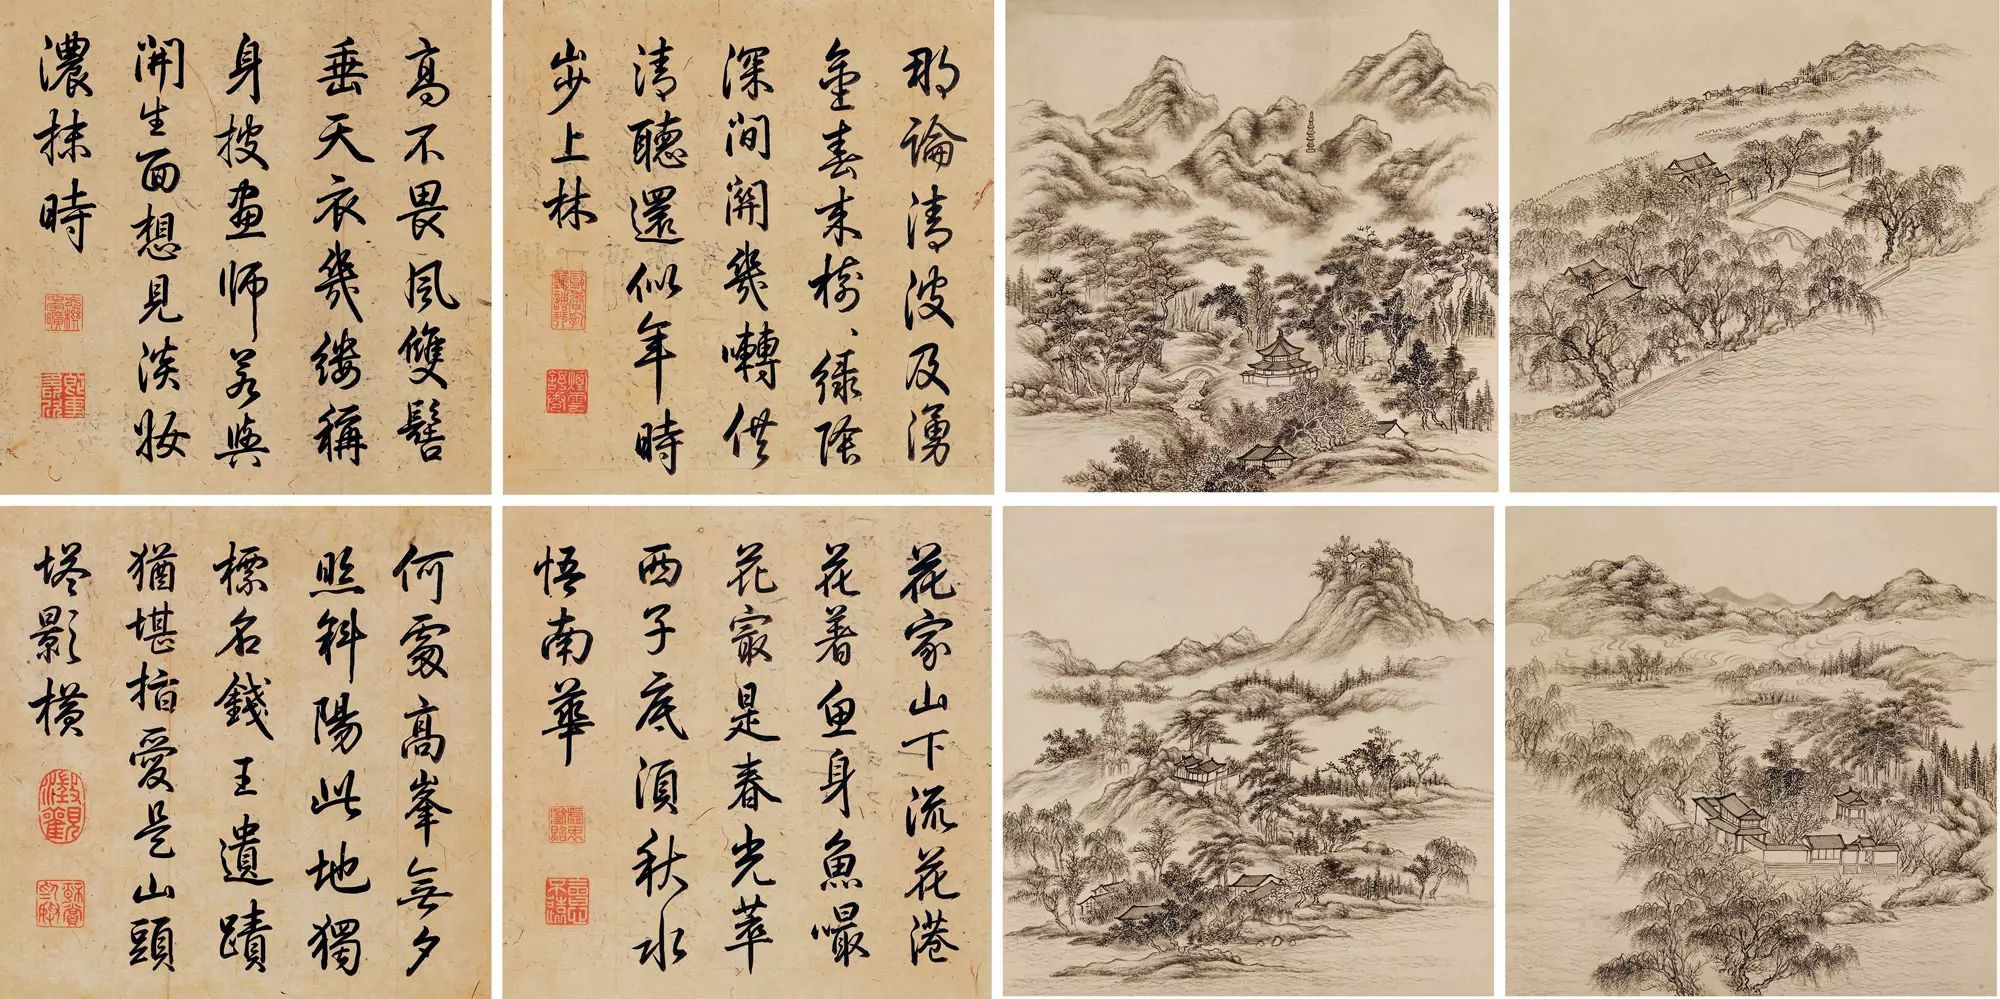 高不畏風雙髻
垂天衣幾縷稱
身披畫師若與
開生面想見淡妝
濃抹時
那論清波及湧
金春来樹〻綠陰
深間關幾囀供
清聽還似年時
步上林
何處高峯無夕
照斜陽此地獨
標名錢王遺蹟
猶堪指愛是山頭
塔影橫
澂觀
花家山下流花港
花著魚身魚嘬
花寂是春光萃
西子底須秋水
悟南華
會心不遠